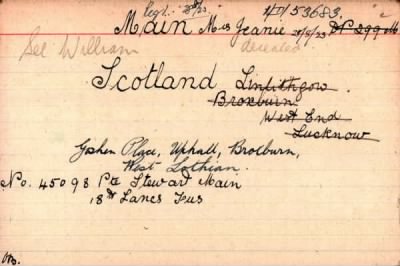 Regd. 28/5/23. 4/M/53683.
Main Mrs Jeanie 28/5/23 DP 299M
See William deceased
Scotland Linlithgow
Broxburn
West End
Lucknow
Goshen Place, Uphall, Broxburn,
West Lothian.
No. 45098 Pte Stewart Main
18th Lancs Fus